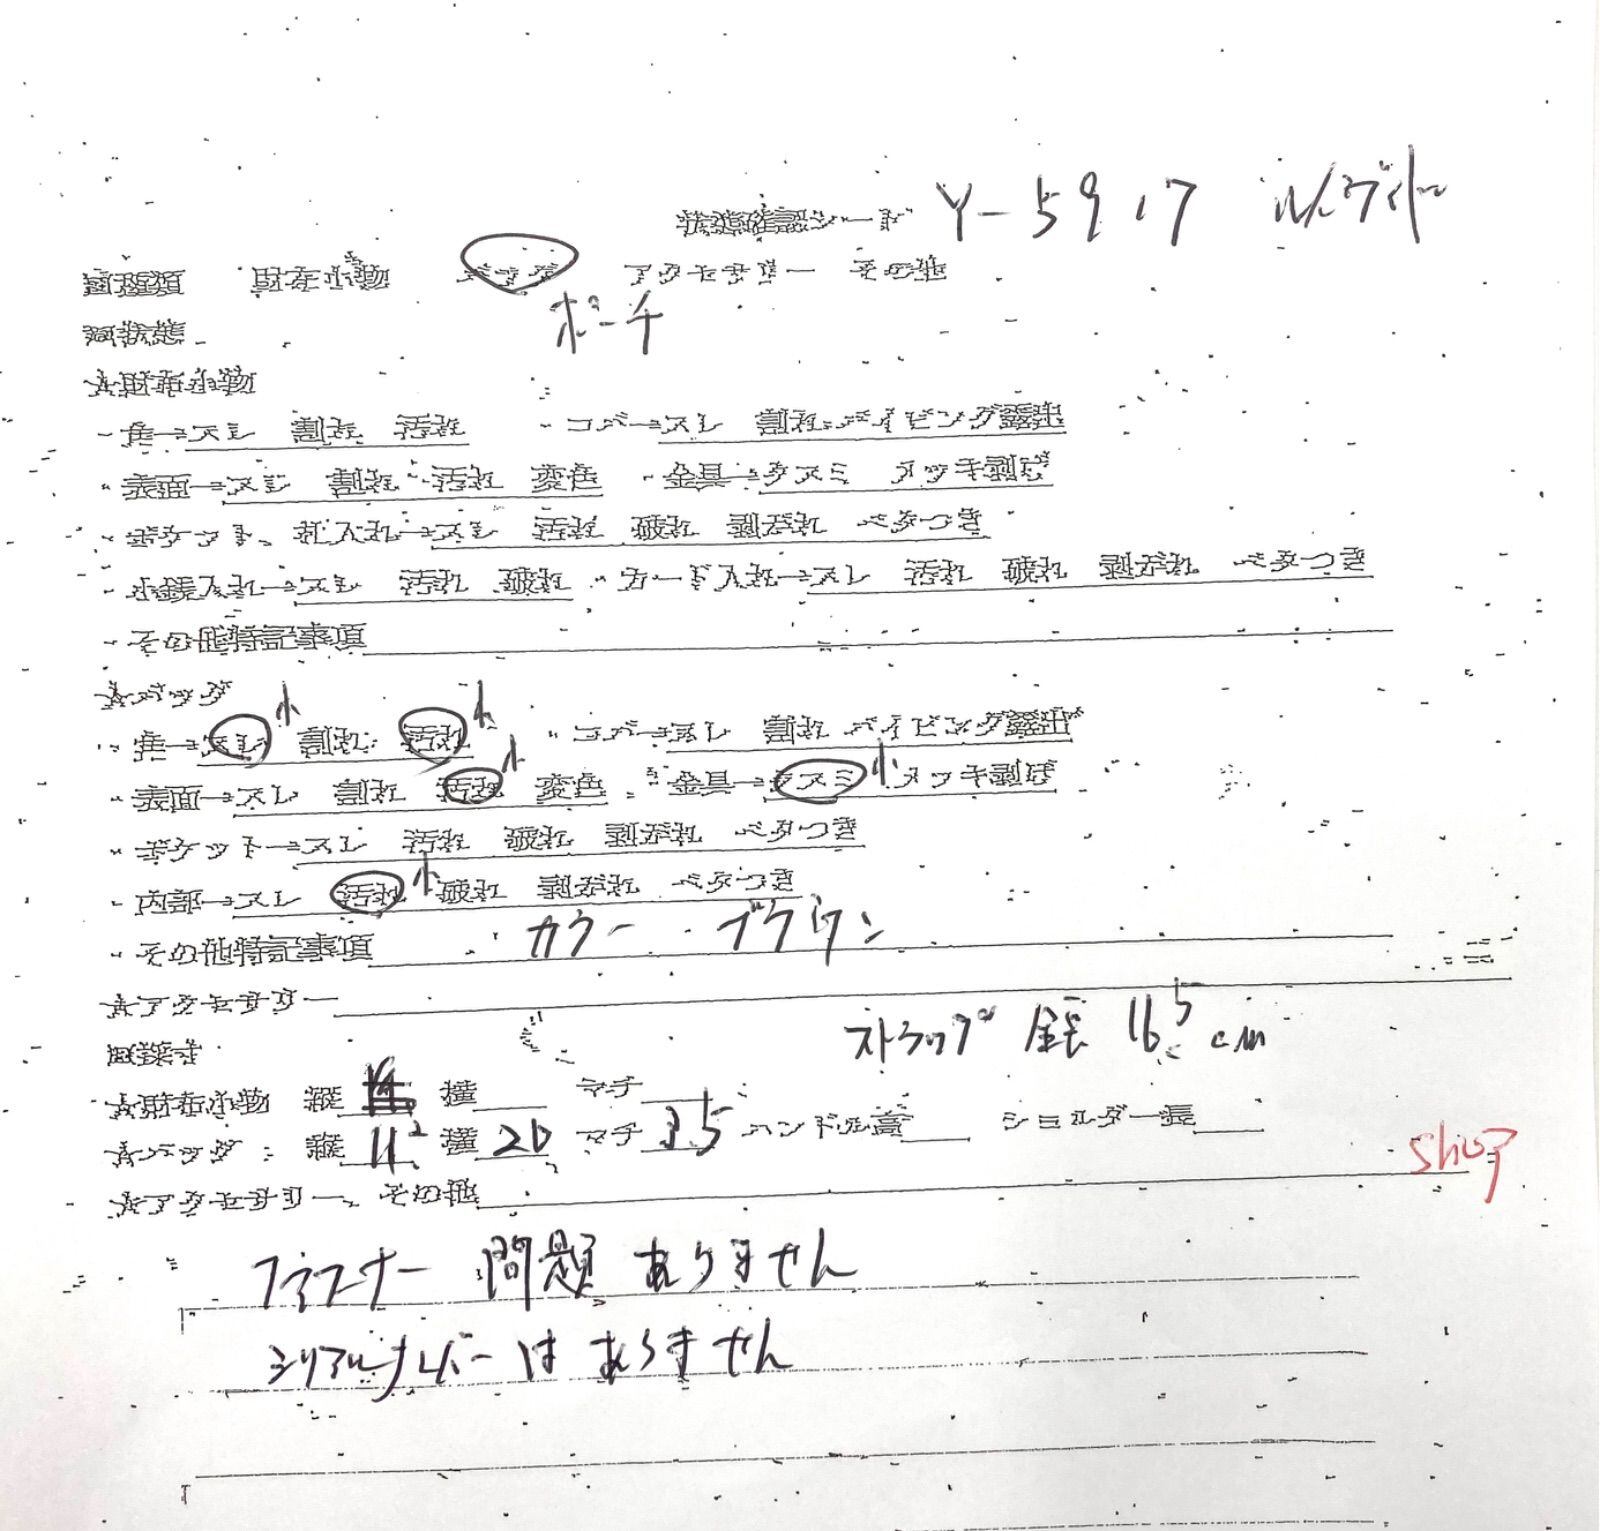 状態確認シート Y-5917 ルイヴィトン
財布小物 バッグ アクセサリー その他
ポーチ
状態
★財布小物
・角→スレ 割れ 汚れ ・コバ→スレ 割れ パイピング露出
・表面→スレ 割れ 汚れ 変色 ・金具→クスミ メッキ剥げ
・ポケット、札入れ→スレ 汚れ 破れ 剥がれ ベタつき
・小銭入れ→スレ 汚れ 破れ ・カード入れ→スレ 汚れ 破れ 剥がれ ベタつき
・その他特記事項
★バッグ
・角→スレ小 割れ 汚れ小 ・コバ→スレ 割れ パイピング露出
・表面→スレ 割れ 汚れ小 変色 ・金具→クスミ小 メッキ剥げ
・ポケット→スレ 汚れ 破れ 剥がれ ベタつき
・内部→スレ 汚れ小 破れ 剥がれ ベタつき
・その他特記事項 カラー ブラウン
★アクセサリー
採寸 ストラップ 全長 16.5 cm
★財布小物 縦 横 マチ
★バッグ:縦 11.2 横 20 マチ 3.5 ハンドル高 ショルダー長
shop
★アクセサリー、その他
ファスナー 問題 ありません
シリアルナンバーは ありません